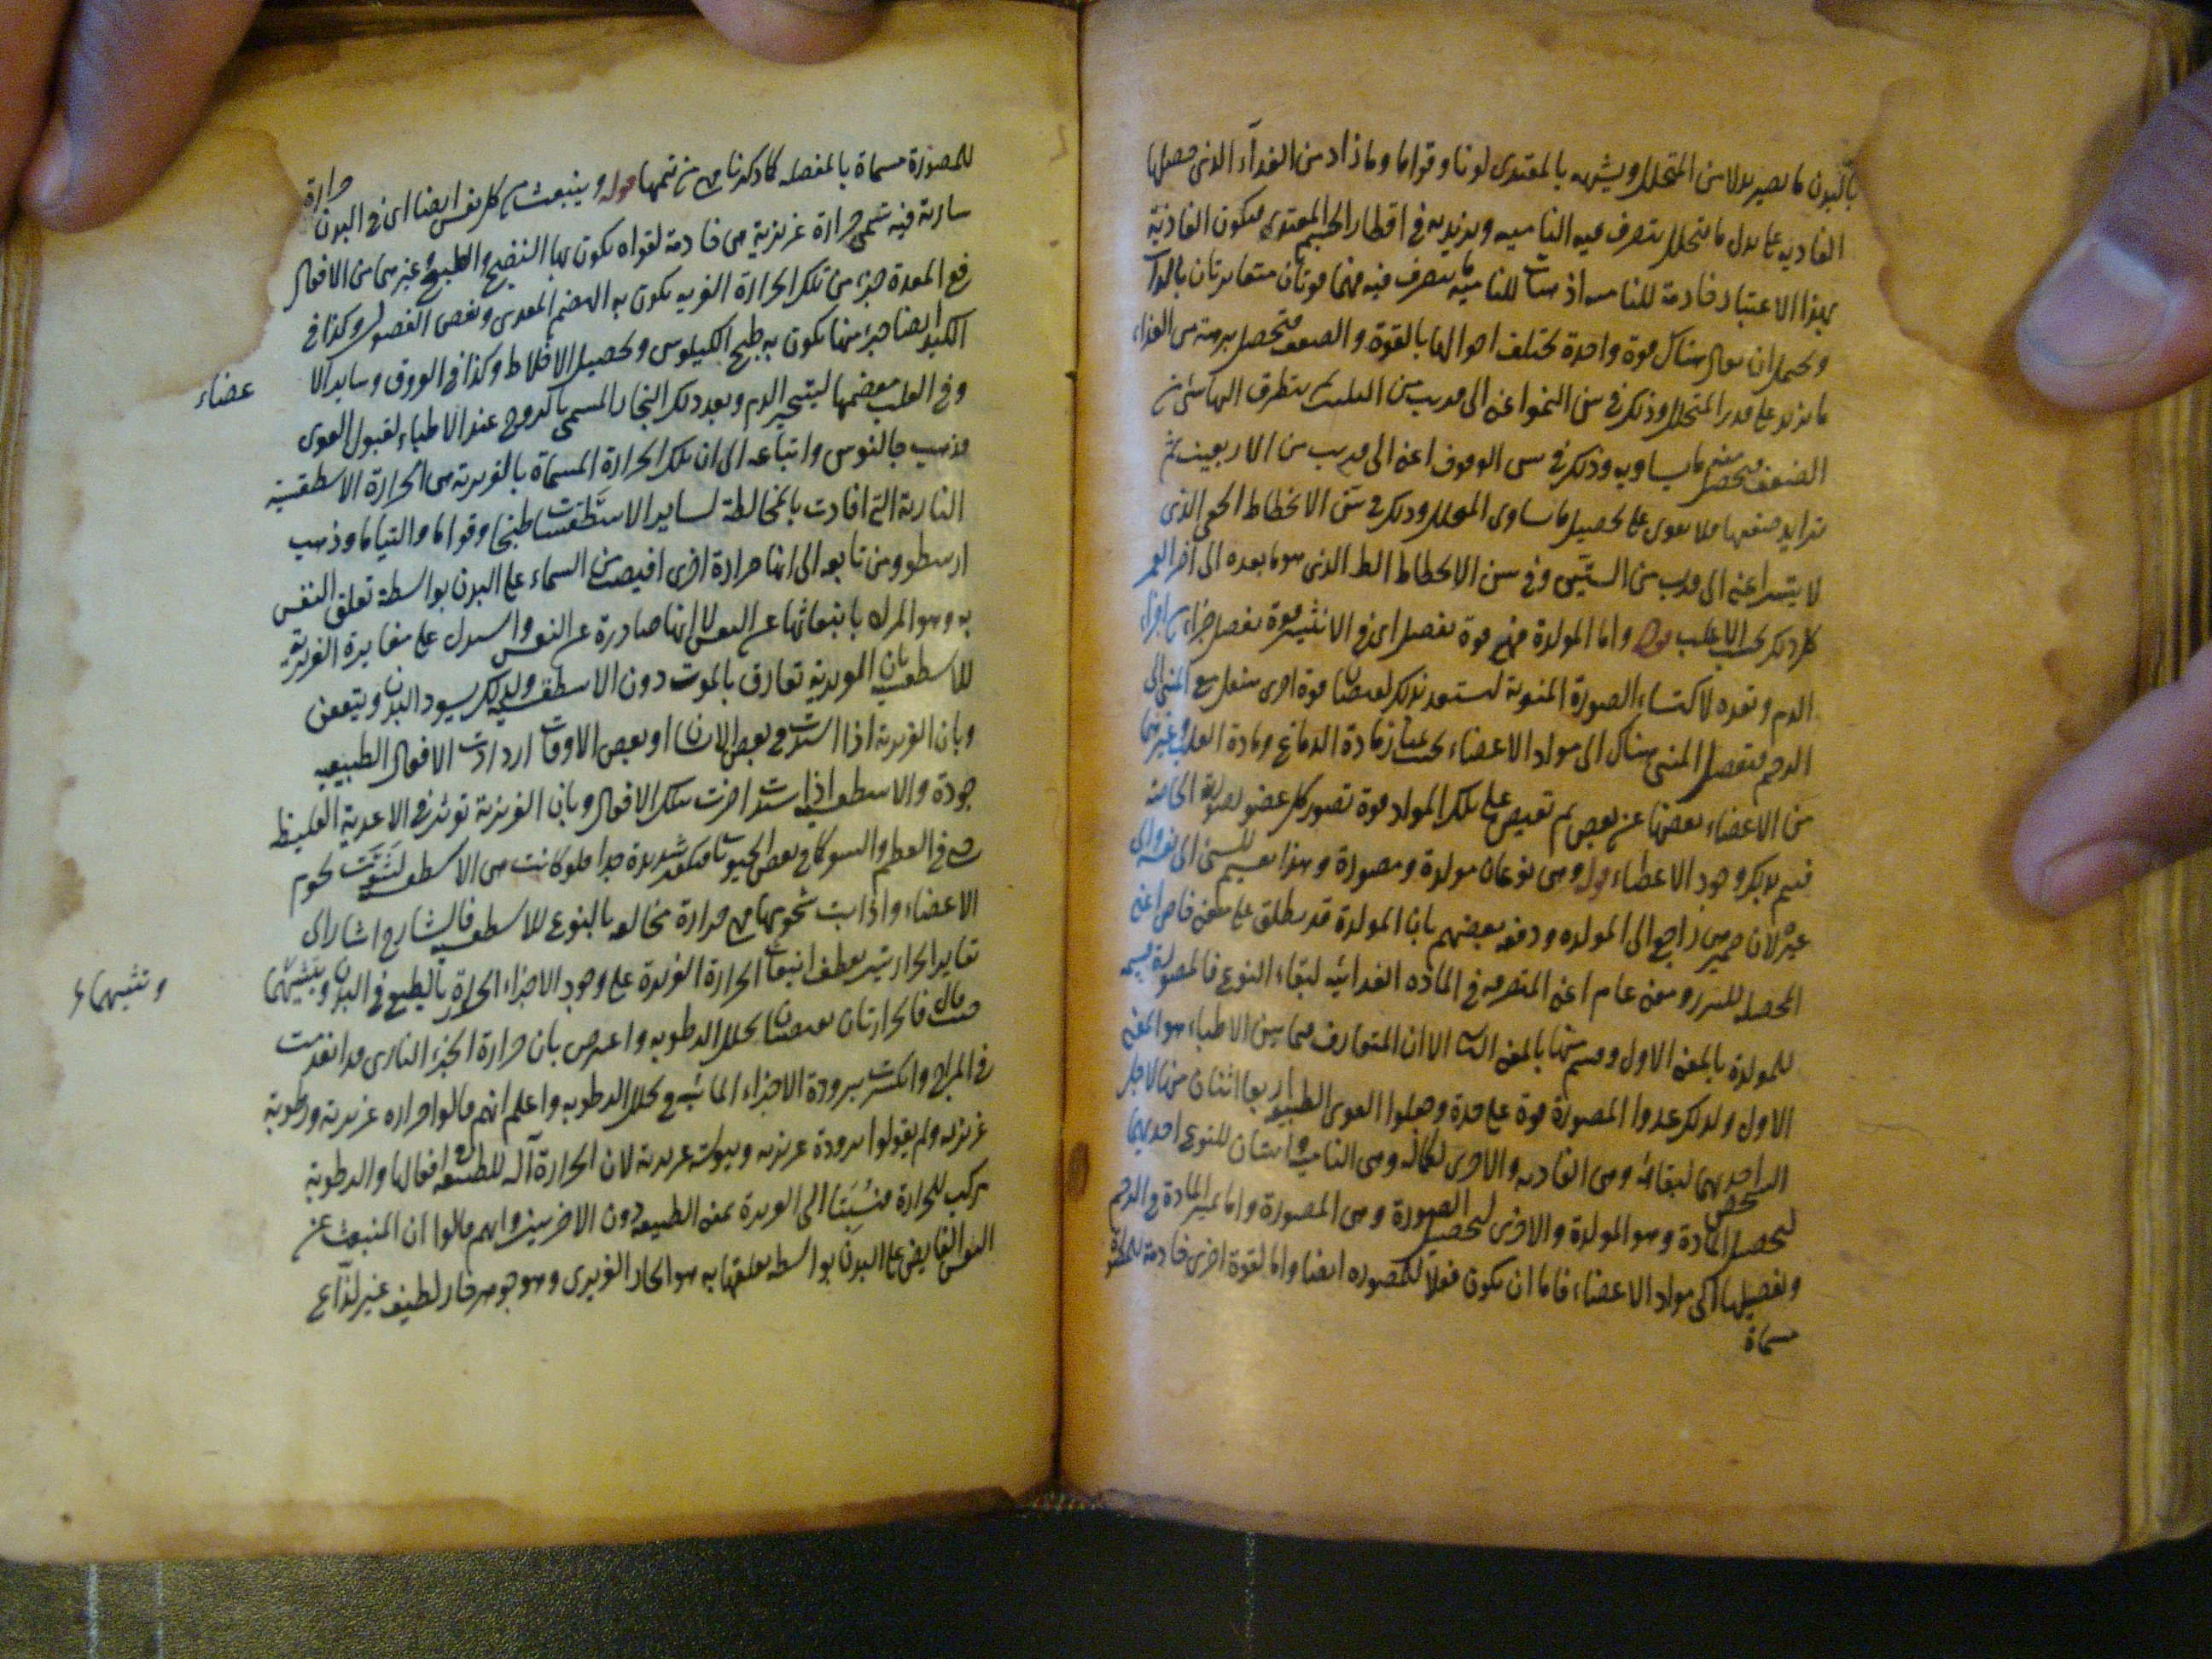 بالبدن ما يصير بدلا من المتحلل ويشبه بالمغتذى لونا وقواما وما زاد من الغذاء الذى حصلها
الغاذية على بدل ما يتحلل يتصرف فيه النامية ويزيد به فى اقطار الجسم المغتذى فيكون الغاذية
بهذا الاعتبار خادمة للنامية اذ للنامية ما يتصرف فيه فهما قوتان متغايرتان بالذات
ويحتمل ان يقال هناك قوة واحدة يختلف احوالها بالقوة والضعف فتحصل من الغذاء
ما يزيد على قدر المتحلل وذلك فى سن النمو اعنى الى قريب من الثلثين ثم يتطرق اليها شئ من
الضعف فتحصل منه ما يساويه وذلك فى سن الوقوف اعنى الى قريب من الاربعين ثم
تزايد ضعفها فلا يقوى على تحصيل ما يساوى المتحلل وذلك فى سن الانحطاط الخفى الذى
لا يتبين اعنى الى قريب من الستين وفى سن الانحطاط الظ الذى هو ما بعده الى اخر العمر
كل ذلك بحسب الاغلب قوله واما المولدة فهى قوة تفصل اى فى الانثيين قوة تفصل جزاء من اجزاء
الدم وتعده لاكتساء الصورة المنوية ليستعد بذلك قوة اخرى مع المنى الى
الرحم فتفصل المنى هناك الى مواد الاعضاء بحيث يمتاز مادة الدماغ ومادة القلب وغيرهما
من الاعضاء بعضها عن بعض ثم تفيض على تلك المواد قوة تصور كل عضو بصورته الخاصة
فيتم بذلك وجود الاعضاء قوله وهى نوعان مولدة ومصورة وهذا تقسيم للشئ الى نفسه والى
غيره لان ضمير هى راجع الى المولده ودفعه بعضهم بان المولدة قد يطلق على معنى خاص اعنى
المحصلة للبزر ومعنى عام اعنى المتصرفه فى المادة الغذائية لبقاء النوع فالمصورة قسيمه
للمولدة بالمعنى الاول وقسم منها بالمعنى الثانى الا ان المتعارف فيما بين الاطباء هو المعنى
الاول ولذلك عدوا المصورة قوة على حدة وجعلوا القوى الطبيعية اربعا اثنتان منها لاجل
الشخص احديهما لبقائه وهى الغاذيه والاخرى لكماله وهى النامية واثنتان للنوع احديهما
لتحصيل المادة وهو المولدة والاخرى لتحصيل الصورة وهى المصورة واما تميز المادة فى الرحم
وتفصيلها الى مواد الاعضاء فاما ان يكون فعلا للمصورة ايضا واما لقوة اخرى خادمة للمصورة
مسماة
للمصورة مسماة بالمفصلة كما ذكرنا من تتمها قوله وينبعث من كل نفس ايضا اى فى البدن حرارة
سارية فيه تسمى حرارة غريزية هى خادمة لقواه يكون بها النضج والطبخ وغيرهما من الافعال
ففى المعدة جزء من تلك الحرارة الغريزيه يكون به الهضم المعدى ونفض الفضول وكذا فى
الكبد ايضا جزء منها يكون به طبخ الكيلوس وتحصيل الاخلاط وكذا فى العروق وساير الا
عضاء
وفى القلب بعضها ليتبخر الدم وبعد ذلك البخار المسمى بالروح عند الاطباء لقبول القوى
فذهب جالنوس واتباعه الى ان تلك الحرارة المسماة بالغريزية هى الحرارة الاسطقسية
النارية التى افادت بالمخالطة لساير الاسطقسات طبخا وقواما والتياما وذهب
ارسطو ومن تابعه الى انها حرارة اخرى افيضت من السماء على البدن بواسطة تعلق النفس
به وهو المراد بانبعاثها عن النفس لا انها صادرة عن النفس واستدل على مغايرة الغريزية
للاسطقسية بان الغريزية تفارق بالموت دون الاسطقسية ولذلك يسود البدن ويتعفن
وبان الغريزية اذا اشتدت فى بعض الاسنان او بعض الاوقات ازدادت الافعال الطبيعيه
جودة والاسطقسية اذا اشتدت اضرت بتلك الافعال وبان الغريزية تؤثر فى الاغذية الغليظة
حتى فى العظم والشوك فى بعض الحيوانات شديدة جدا فلو كانت هى الاسطقسية لشوت لحوم
الاعضاء واذابت شحومها فهى حرارة مخالفة بالنوع للاسطقسية فالشارح اشار الى
تغاير الحرارتين بعطف انبعاث الحرارة الغريزة على وجود الاجزاء الحارة بالطبع فى البدن
وتشبهما
حيث قال فالحرارتان تحلل الرطوبه واعترض بان حرارة الجزء النارى قد انعدمت
فى المزاج وانكسرت ببرودة الاجزاء المائية فى تحلل الرطوبه واعلم انهم قالوا حراره غريزية ورطوبة
غريزيه ولم يقولوا برودة غريزيه ويبوسة غريزية لان الحرارة آلة للطبيعة فى افعالها والرطوبة
مركب للحرارة فنسبتا الى الغريزة بمعنى الطبيعة دون الاخريين وانهم قالوا ان المنبعث عن
النفس الفايض على البدن بواسطة تعلقها به هو الحار الغريزى وهو جوهر حار لطيف غير لذاع